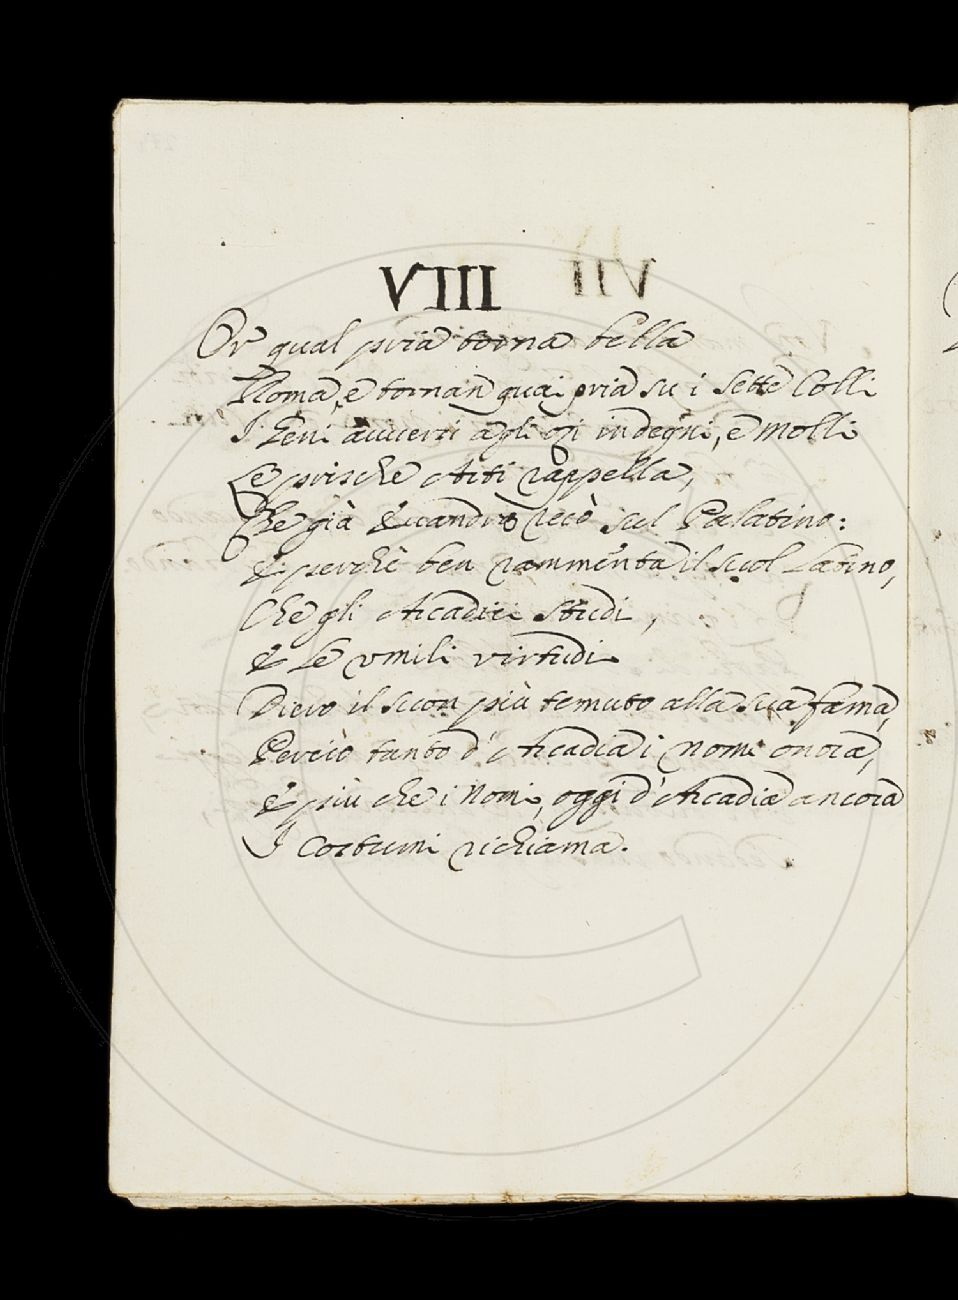 VIII
Or qual pria torna bella
Roma, e tornan quai pria su i Sette Colli
I Geni avversi agli ozi indegni, e molli
Le prische Arti rappella,
Che già Evandro recò sul Palatino:
E perchè ben rammenta il suol Latino,
Che gli Arcadici Studi,
E le umili virtudi
Diero il suon più temuto alla sua fama,
Perciò tanto d'Arcadia i nomi onora,
E più che i Nomi, oggi d'Arcadia ancora
I Costumi richiama.